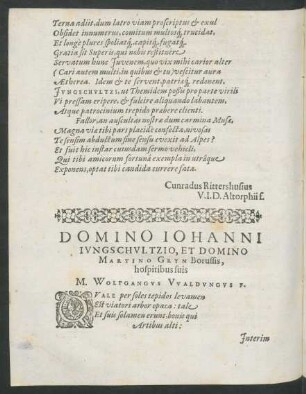 Terna adiit, dum latro viam proscriptus & exul
Obsidet innumeros, comitum multosq́, trucidat.
Et longè plures spoliatq́, capitq́, fugatq́.
Gratia sit Superis, qui nobis restituere
Servatum hunc Juvenem, quo vix mihi carior alter
(Cari autem multi, in quibus & tu) vescitur aura
Aetherea. Idem & te servent, patriaeq́, redonent,
JUNGSCHULTZI, ut Themidem possis pro parte virili
Vi pressam eripere, & fulcire aliquando labantem,
Atque patrocinium trepido praebere clienti.
Fallor, an auscultas nostrae dum carmina Musae,
Magna via tibi pars placidè confecta, nivosas
Te sensim abductum sine sensu evexit ad Alpes?
Et fuit hic instar cuiusdam sermo vehicli.
Qui tibi amicorum fortunae exempla in utraque
Exponens, optat tibi candida currere fata.
Cunradus Rittershusius
V.I.D. Altorphii f.
DOMINO IOHANNI
IUNGSCHULTZIO, ET DOMINO
MARTINO GRYN Borussis,
hospitibus suis
M. WOLFGANGUS VUALDUNGUS P.
QUALE per soles tepidos levamen
Est viatori arbor opaca: tale
Et suis solamen erunt bonis qui
Artibus alti:
Interim